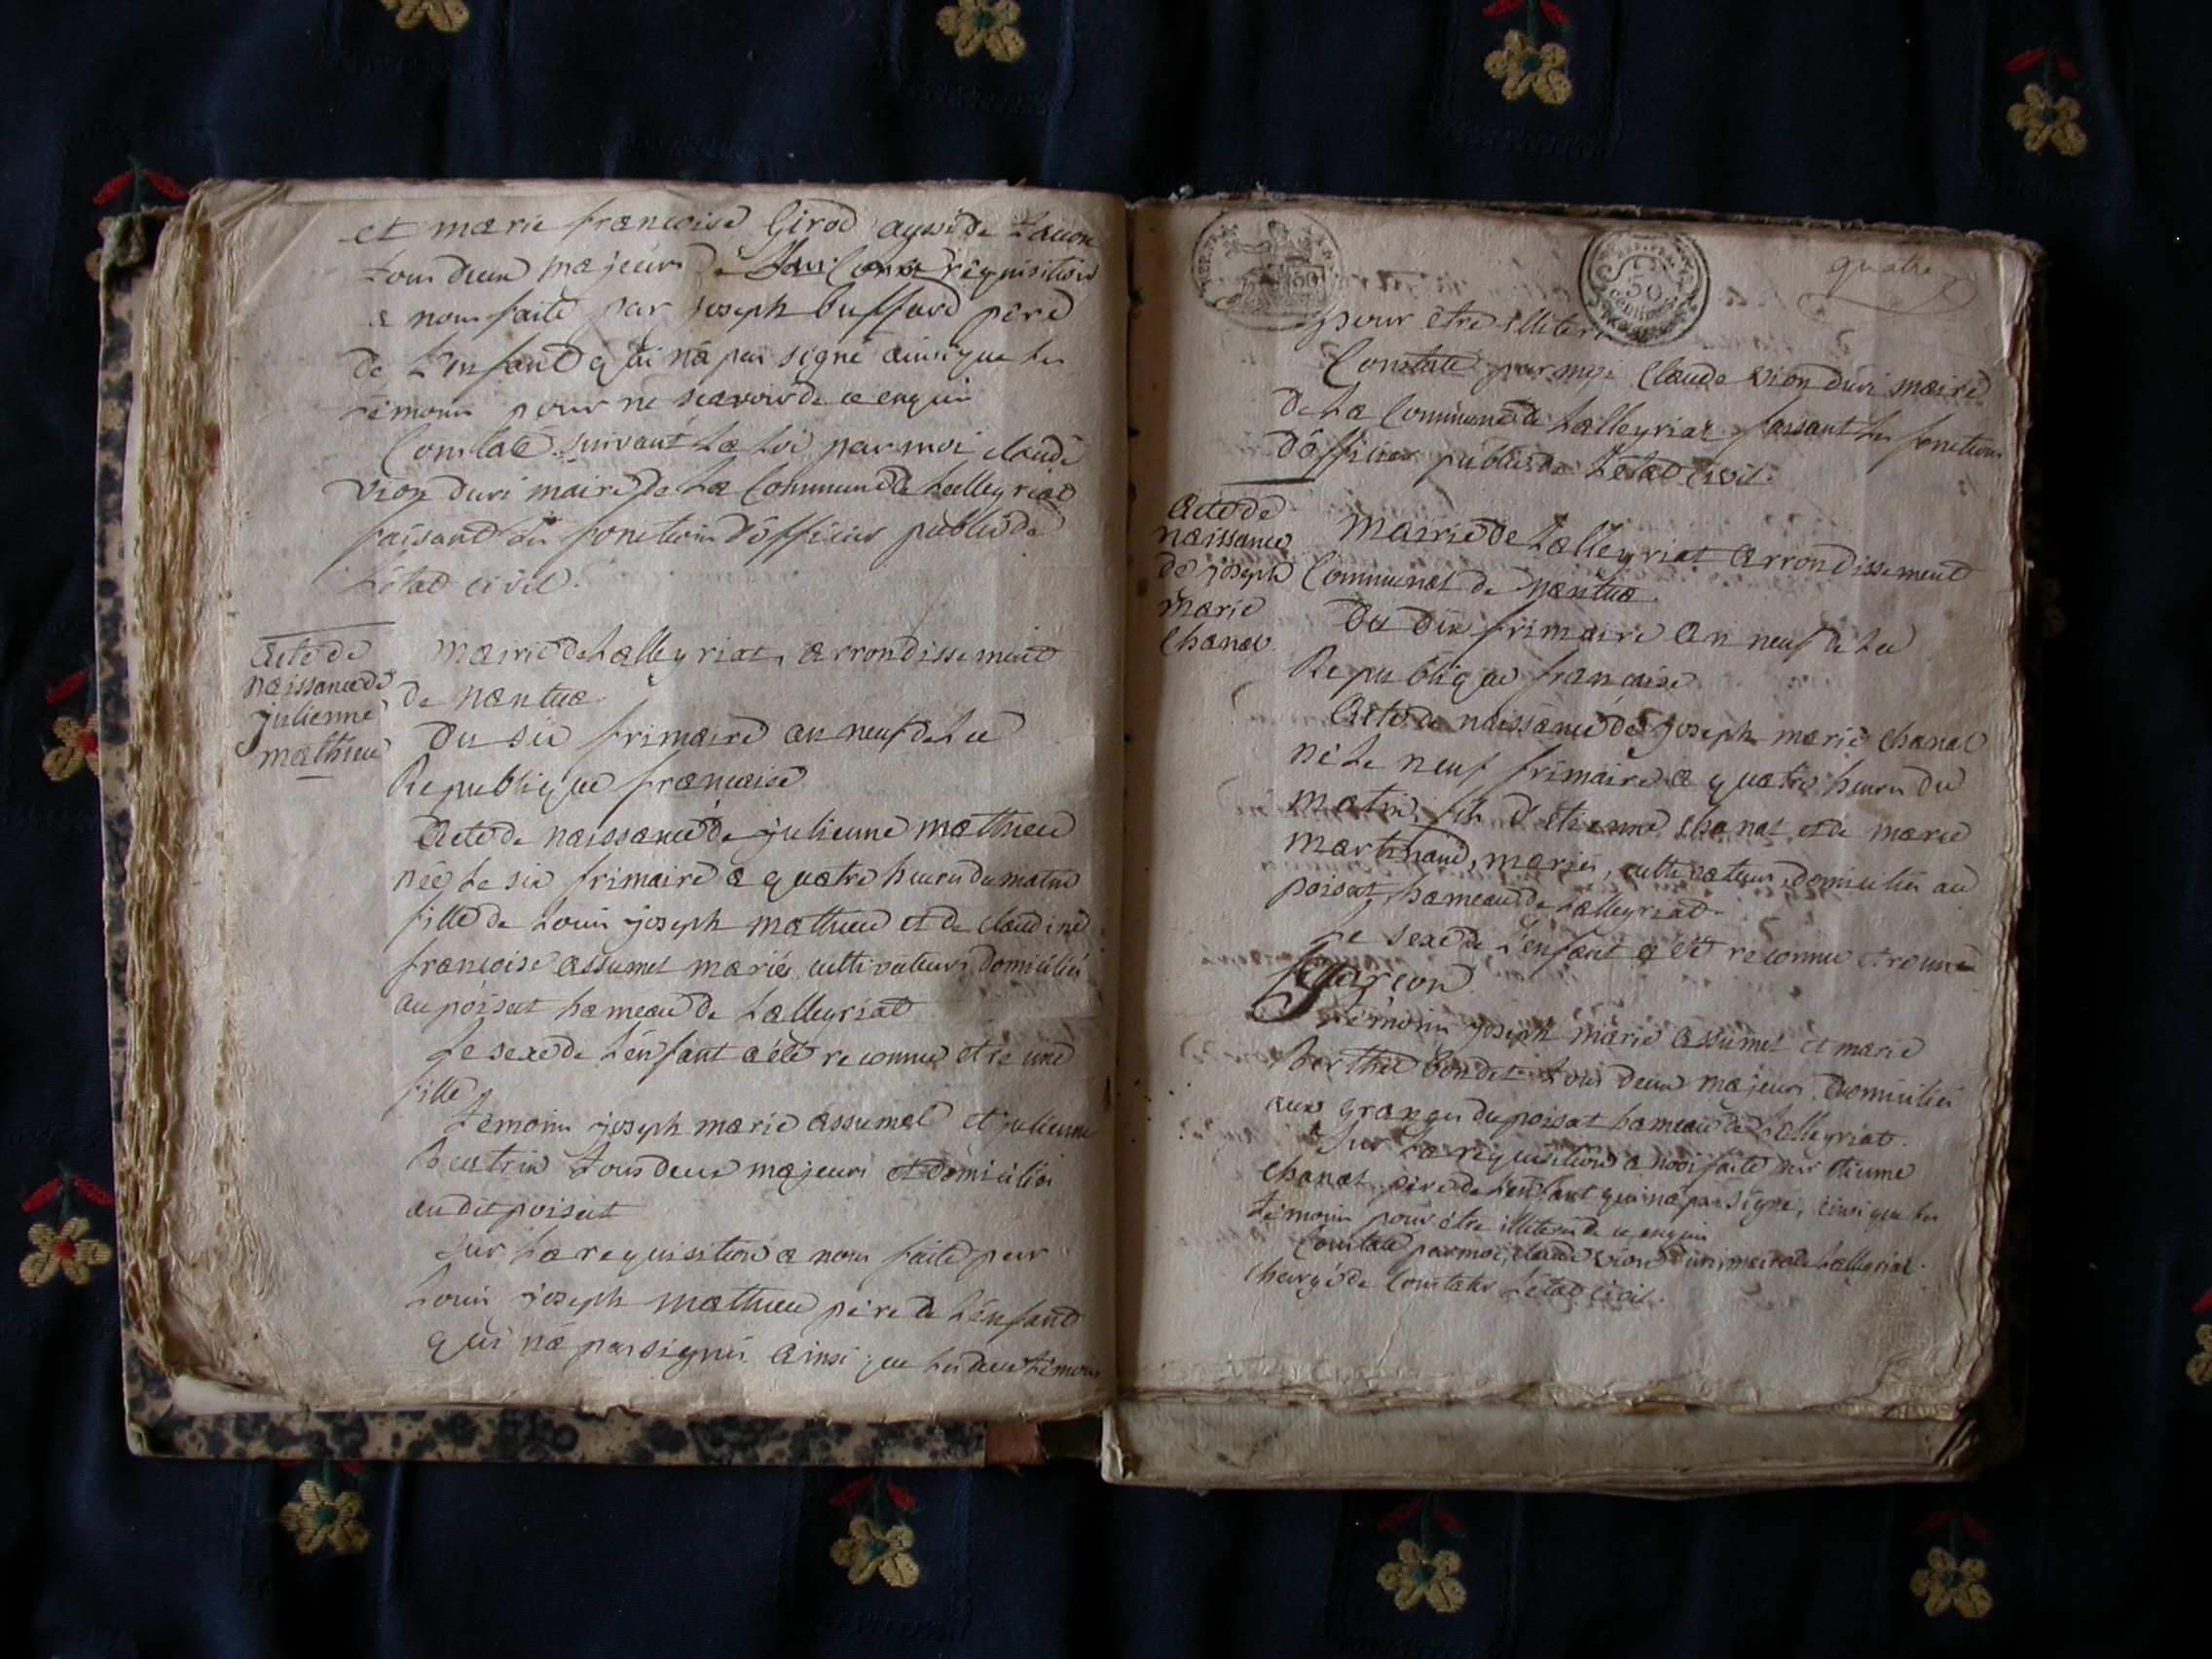 et marie francoise Girod aussi de Lalleyriat
tous deux majeurs de Sur la requisition
a nous faite par joseph buffard père
de L'enfant qui na pas signé ainsi que les
témoins pour ne scavoir de ce enquis
Constaté suivant La Loi par moi claude
vion duri maire de La Commune de Lalleyriat
faisant les fonctions d'officier public de
L'état civil.
acte de
naissance de
julienne
mathieu
mairie de Lalleyriat, arrondissement
de nantua.
Du six frimaire an neuf de La
Republique francaise
acte de naissance de julienne mathieu
née Le six frimaire a quatre heures du matin
fille de Louis joseph mathieu et de claudine
francoise assumel mariés cultivateurs domiciliés
au poisat hameau de Lalleyriat
Le sexe de L'enfant a été reconnu etre une
fille
temoins joseph marie assumel et julienne
Beatrix tous deux majeurs et domiciliés
au dit poisat
Sur La requisition a nous faite par
Louis joseph mathieu père de L'enfant
qui na pas signés ainsi que les deux témoins
quatre
50
50
centimes
pour etre illiterés
Constaté par moi Claude vion duri maire
de La Commune de Lalleyriat faisant les fonctions
d'officier public de L'etat civil.
acte de
naissance
de joseph
marie
Chanal
mairie de Lalleyriat arrondissement
Communal de nantua.
Du dix frimaire an neuf de La
Republique francaise
acte de naissance de joseph marie chanal
né Le neuf frimaire a quatre heures du
matin, fils d'etienne chanal et de marie
martinand, mariés, cultivateurs domiciliés au
poisat hameau de Lalleyriat.
Le sexe de L'enfant a été reconnu etre un
garcon
témoins joseph marie assumel et marie
Berthet bondet tous deux majeurs domiciliés
aux granges du poisat hameau de Lalleyriat.
Sur La requisition a nous faite par etienne
chanal père de L'enfant qui na pas signé, ainsi que les
témoins pour être illiterés de ce enquis
Constaté par moi, claude vion duri maire de Lalleyriat
chargé de Constater L'état civil.